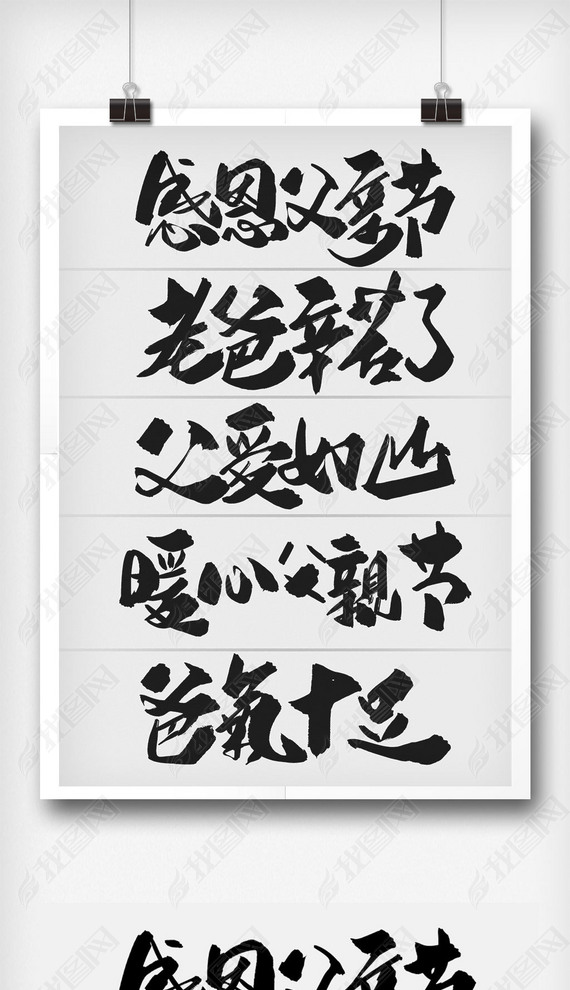 感恩父亲节
老爸辛苦了
父爱如山
暖心父親节
爸氣十足
感恩父亲节